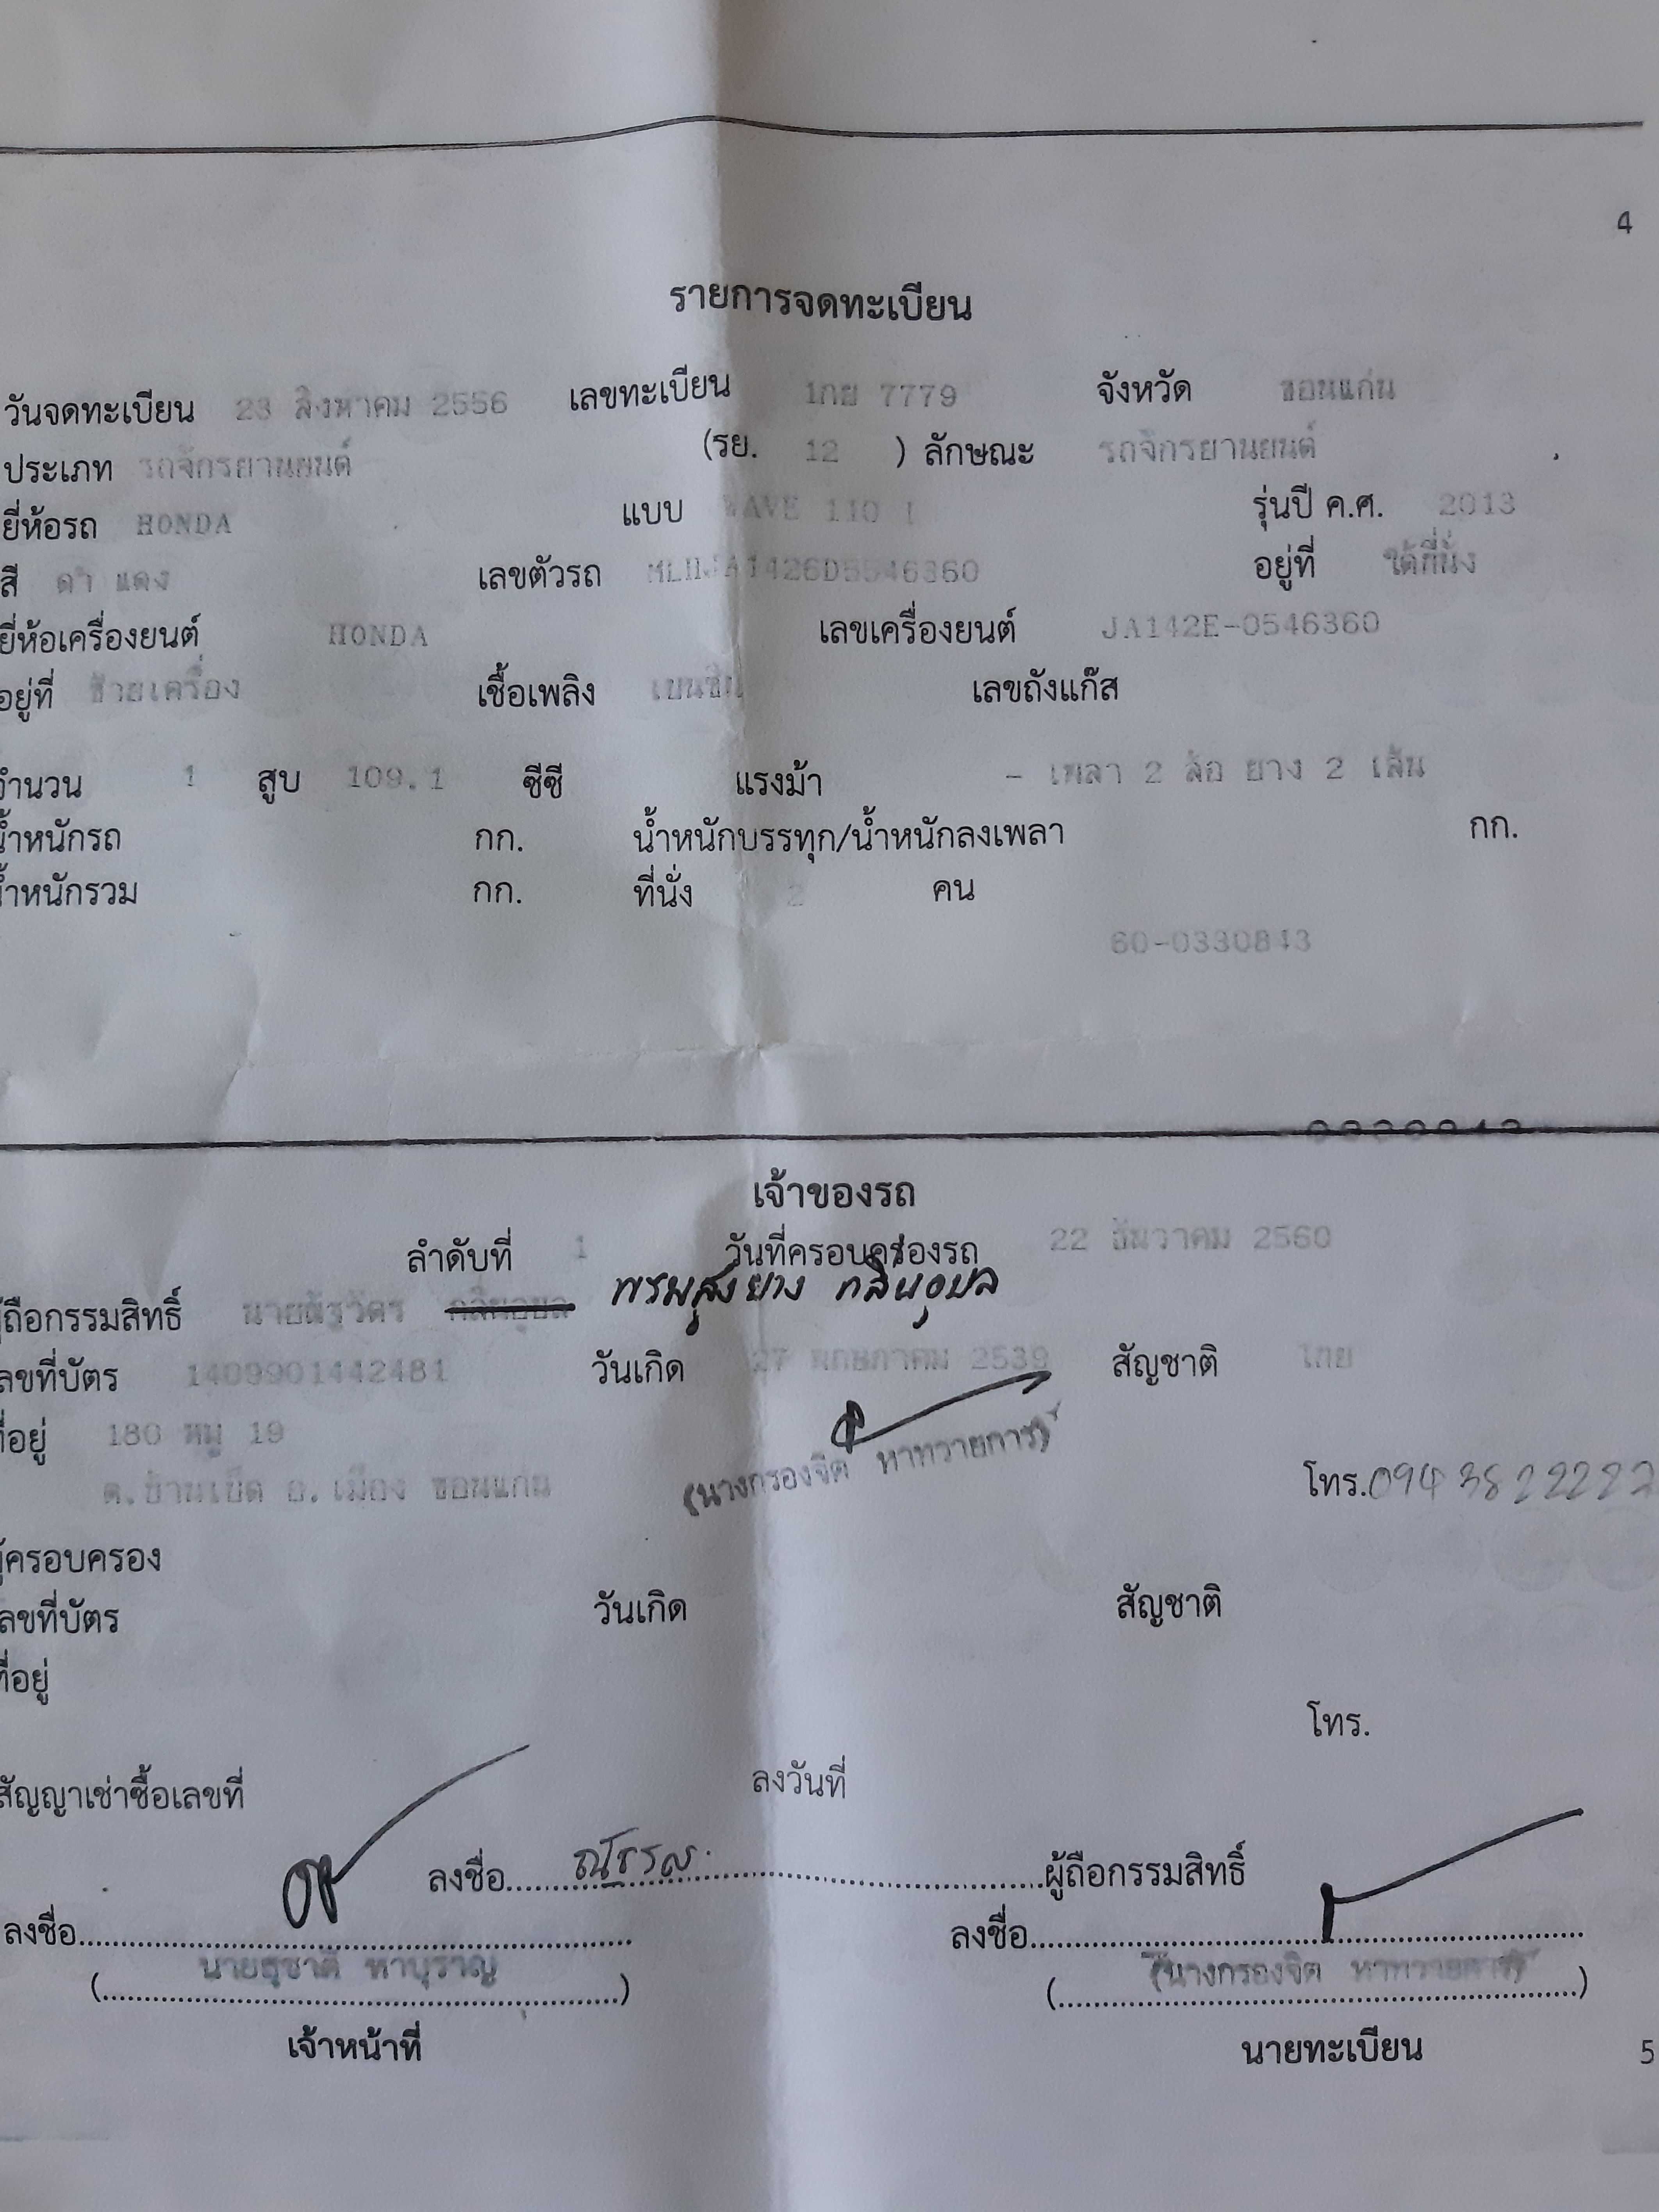 4
รายการจดทะเบียน
วันจดทะเบียน 23 สิงหาคม 2556 เลขทะเบียน 1กย 7779 จังหวัด ขอนแก่น
ประเภท รถจักรยานยนต์ (รย. 12 ) ลักษณะ รถจักรยานยนต์
ยี่ห้อรถ HONDA แบบ WAVE 110 I รุ่นปี ค.ศ. 2013
สี ดำ แดง เลขตัวรถ MLHJA1426D5546360 อยู่ที่ ใต้ที่นั่ง
ยี่ห้อเครื่องยนต์ HONDA เลขเครื่องยนต์ JA142E-0546360
อยู่ที่ ซ้ายเครื่อง เชื้อเพลิง เบนซิน เลขถังแก๊ส
จำนวน 1 สูบ 109.1 ซีซี แรงม้า - เพลา 2 ล้อ ยาง 2 เส้น
น้ำหนักรถ กก. น้ำหนักบรรทุก/น้ำหนักลงเพลา กก.
น้ำหนักรวม กก. ที่นั่ง 2 คน
60-0330843
เจ้าของรถ
ลำดับที่ 1 วันที่ครอบครองรถ 22 ธันวาคม 2560
ผู้ถือกรรมสิทธิ์ กลิ่นอุบล
เลขที่บัตร 1409901442481 วันเกิด 27 พฤษภาคม 2539 สัญชาติ ไทย
ที่อยู่ 180 หมู่ 19
ต.บ้านเป็ด อ.เมือง ขอนแก่น (นางกรองจิต หาทวายการ) โทร.094 3822222
ผู้ครอบครอง
เลขที่บัตร วันเกิด สัญชาติ
ที่อยู่
โทร.
สัญญาเช่าซื้อเลขที่ ลงวันที่
ลงชื่อ ผู้ถือกรรมสิทธิ์
ลงชื่อ ลงชื่อ
นายสุชาติ หาบุราญ (นางกรองจิต หาทวายการ)
เจ้าหน้าที่ นายทะเบียน
5